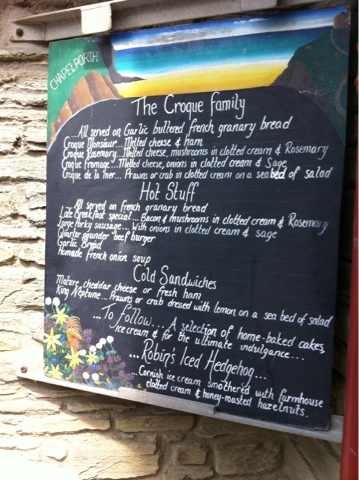 CHAPEL PORTH
The Croque family
...All served on Garlic buttered french granary bread
Croque Monsieur... Melted cheese & ham
Croque Rosemary... Melted cheese, mushrooms in clotted cream & Rosemary
Croque fromage... Melted cheese, onions in clotted cream & Sage
Croque de la mer... Prawns or crab in clotted cream on a sea bed of salad
Hot Stuff
...All served on french granary bread
Late Breakfast special... Bacon & mushrooms in clotted cream & Rosemary
Large Porky sausage... With onions in clotted cream & sage
Quarter pounder beef burger
Garlic Bread
homade french onion soup
Cold Sandwiches
Mature cheddar cheese or fresh ham
King Neptune... Prawns or crab drezed with lemon on a sea bed of salad
...To follow.... A selection of home-baked cakes
ice cream & for the ultimate indulgence....
...Robin's Iced Hedgehog...
...Cornish ice cream smothered with farmhouse
clotted cream & honey-roasted hazelnuts.